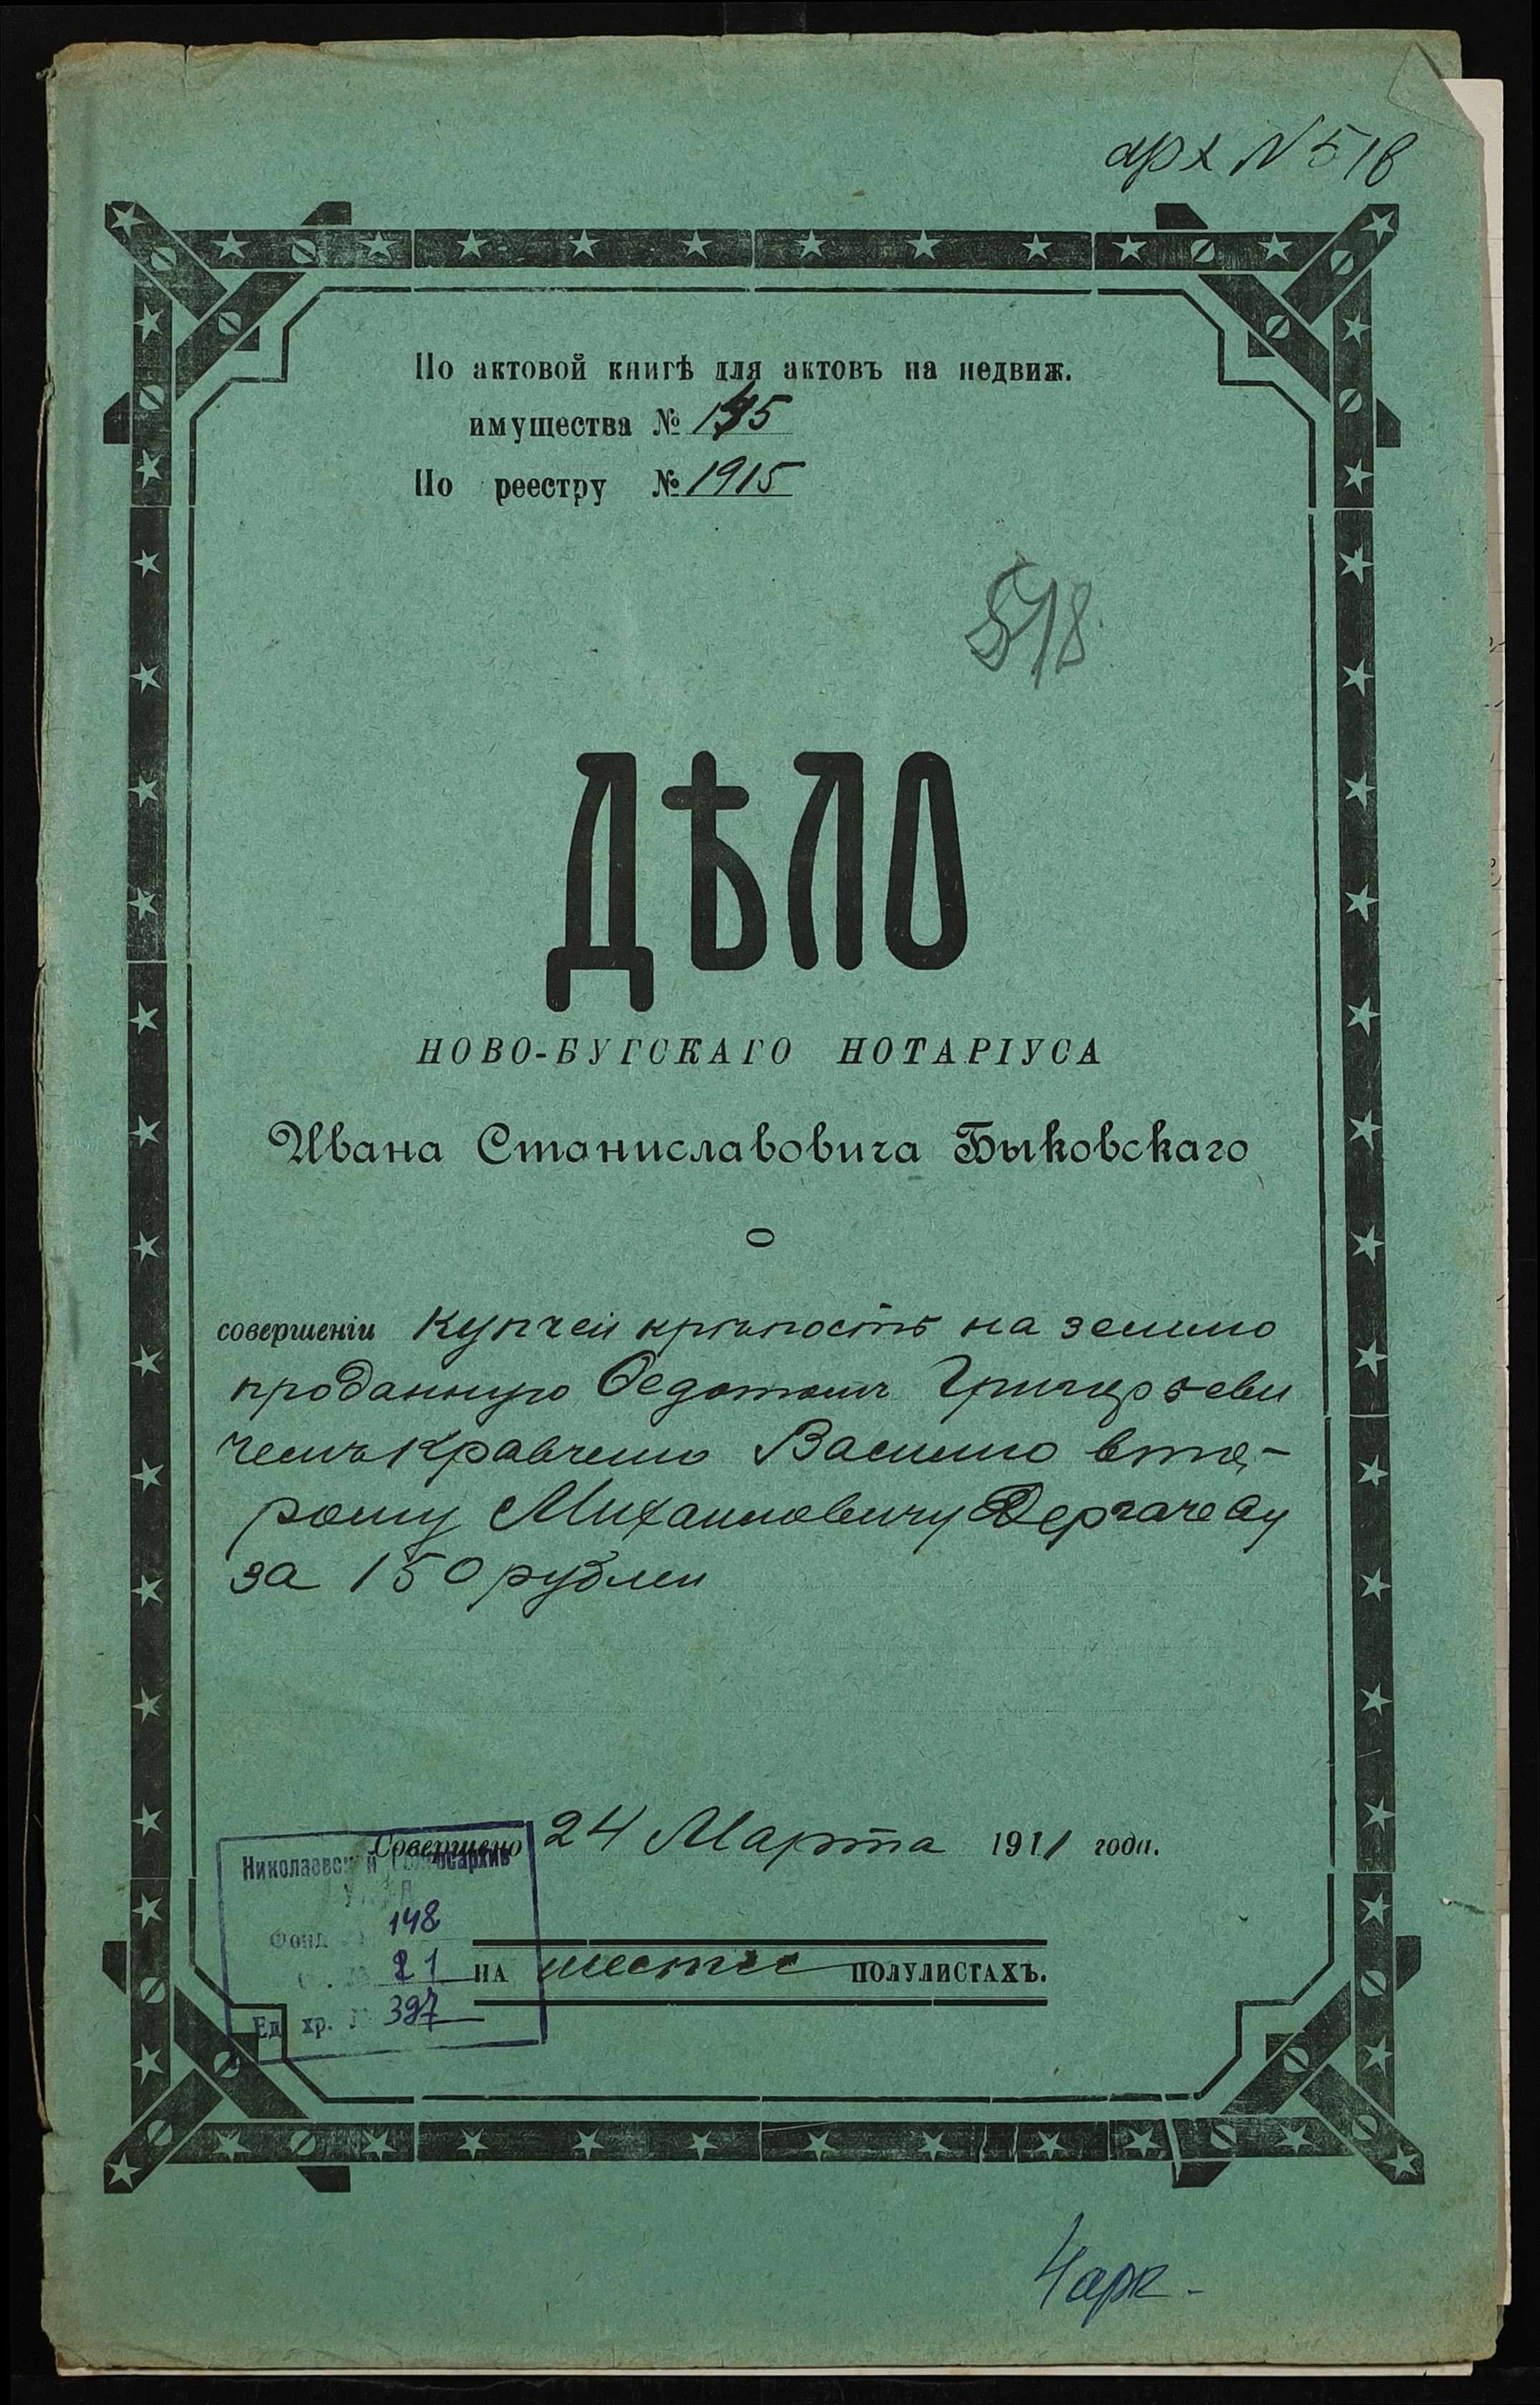 арх N 518
По актовой книгѣ для актовъ на недвиж.
имущества № 145
По реестру № 1915
518
ДѢЛО
НОВО-БУГСКАГО НОТАРІУСА
Ивана Станиславовича Быковскаго
О
совершеніи купчей крѣпости на землю
проданную Федотомъ Григорьеви
чемъ Кравченко Василию вто-
рому Михаиловичу Дергачеву
за 150 рублей
Совершено 24 Марта 1911 года.
Николаевский Госархив
Фонд № 148
Оп. № 21
НА шести ПОЛУЛИСТАХЪ.
Ед. хр. № 397
4 арк.